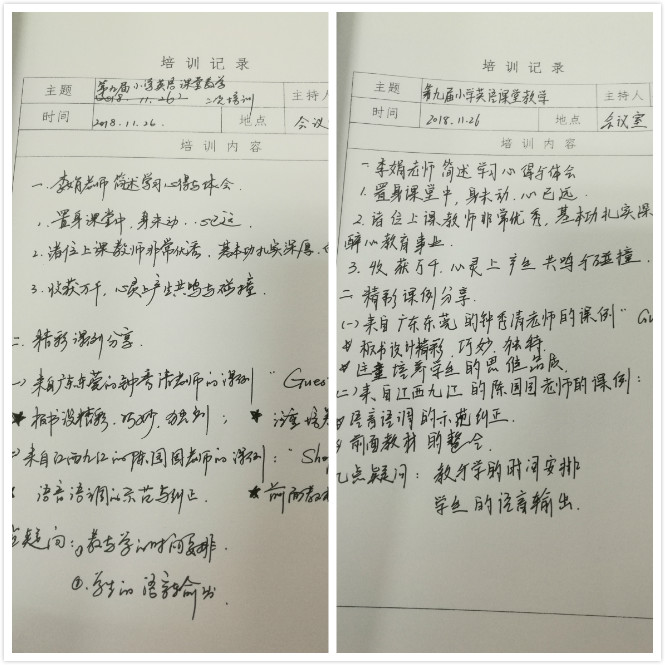 培训记录
主题 第九届小学英语课堂教学 主持人
2018.11.26 二次培训
时间 2018.11.26. 地点 会议
培训内容
一.李娟老师简述学习心得与体会.
1.置身课堂中,身未动.心已远.
2.诸位上课教师非常优秀,基本功扎实深厚.
3.收获万千,心灵上产生共鸣与碰撞.
二.精彩课例分享.
一)来自广东东莞的钟秀清老师的课例"Gues
★板书设精彩.巧妙.独到; ★注重培养
二)来自江西九江的陈国国老师的课例:"Sho
语言语调的示范与纠正. ★前两教材
点疑问:①教与学的时间安排.
②.学生的语言输出.
培训记录
主题 第九届小学英语课堂教学 主持人
时间 2018.11.26 地点 会议室
培训内容
一.李娟老师简述学习心得与体会
1.置身课堂中,身未动.心已远.
2.诸位上课教师非常优秀,基本功扎实深
醉心教育事业.
3.收获万千.心灵上产生共鸣与碰撞.
二.精彩课例分享.
(一)来自广东东莞的钟秀清老师的课例"Gu
★板书设计精彩.巧妙.独特.
★注重培养学生的思维品质.
(二)来自江西九江的陈国国老师的课例:
★语言语调的示范纠正.
前面教材的整合.
几点疑问:教与学的时间安排
学生的语言输出.